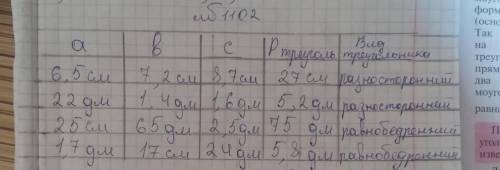 №1102
a в c Pтреуголь Вид треугольника
6,5см 7,2см 8,7см 27см разносторонний
22дм 1,4дм 1,6дм 5,2дм разносторонний
25см 65дм 2,5дм 75 дм равнобедренний
1,7дм 17см 24дм 5,8дм равнобедренний
форм
(осно
Так
на
треуг
прям
два
моуго
равна
П
уголн
изве